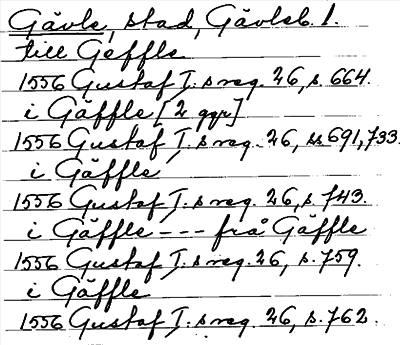 Gävle, stad, Gävleb. l.
till Geffle
1556 Gustaf I:s reg. 26, s. 664.
i Gäffle [2 ggr]
1556 Gustaf I:s reg. 26, ss. 691, 733.
i Gäffle
1556 Gustaf I:s reg. 26, s. 743.
i Gäffle --- från Gäffle
1556 Gustaf I:s reg. 26, s. 759.
i Gäffle
1556 Gustaf I:s reg. 26, s. 762.